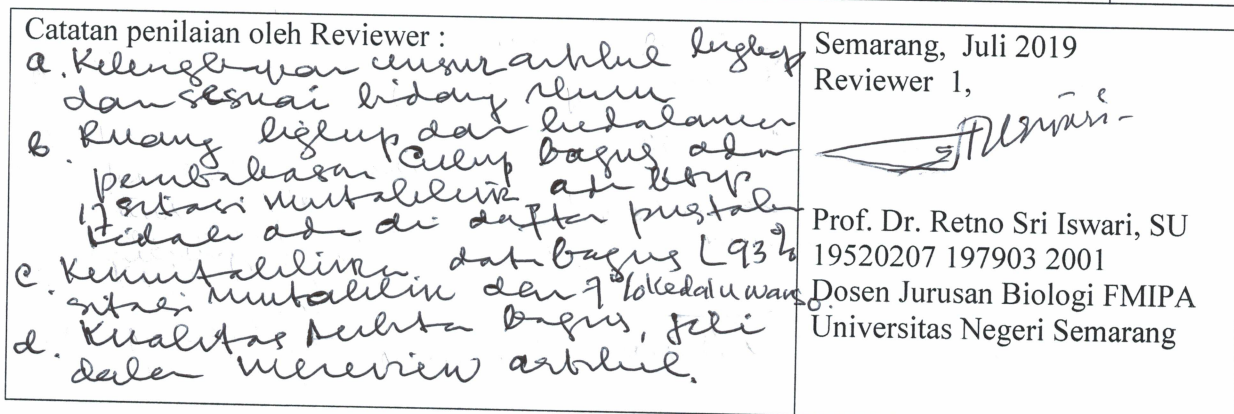 Catatan penilaian oleh Reviewer :
a. Kelengkapan unsur artikel lengkap
dan sesuai bidang ilmu
b. Ruang ligkup dan kedalaman
pembahasan Cukup bagus ada
17 sitasi mutakhir
tidak ada di daftar pustaka
c. Kemutakhiran data bagus (93%
sitasi mutakhir dan 7% kedaluwarsa.
d. Kualitas bagus, jeli
dalam mereview artikel.
Semarang, Juli 2019
Reviewer 1,
Prof. Dr. Retno Sri Iswari, SU
19520207 197903 2001
Dosen Jurusan Biologi FMIPA
Universitas Negeri Semarang